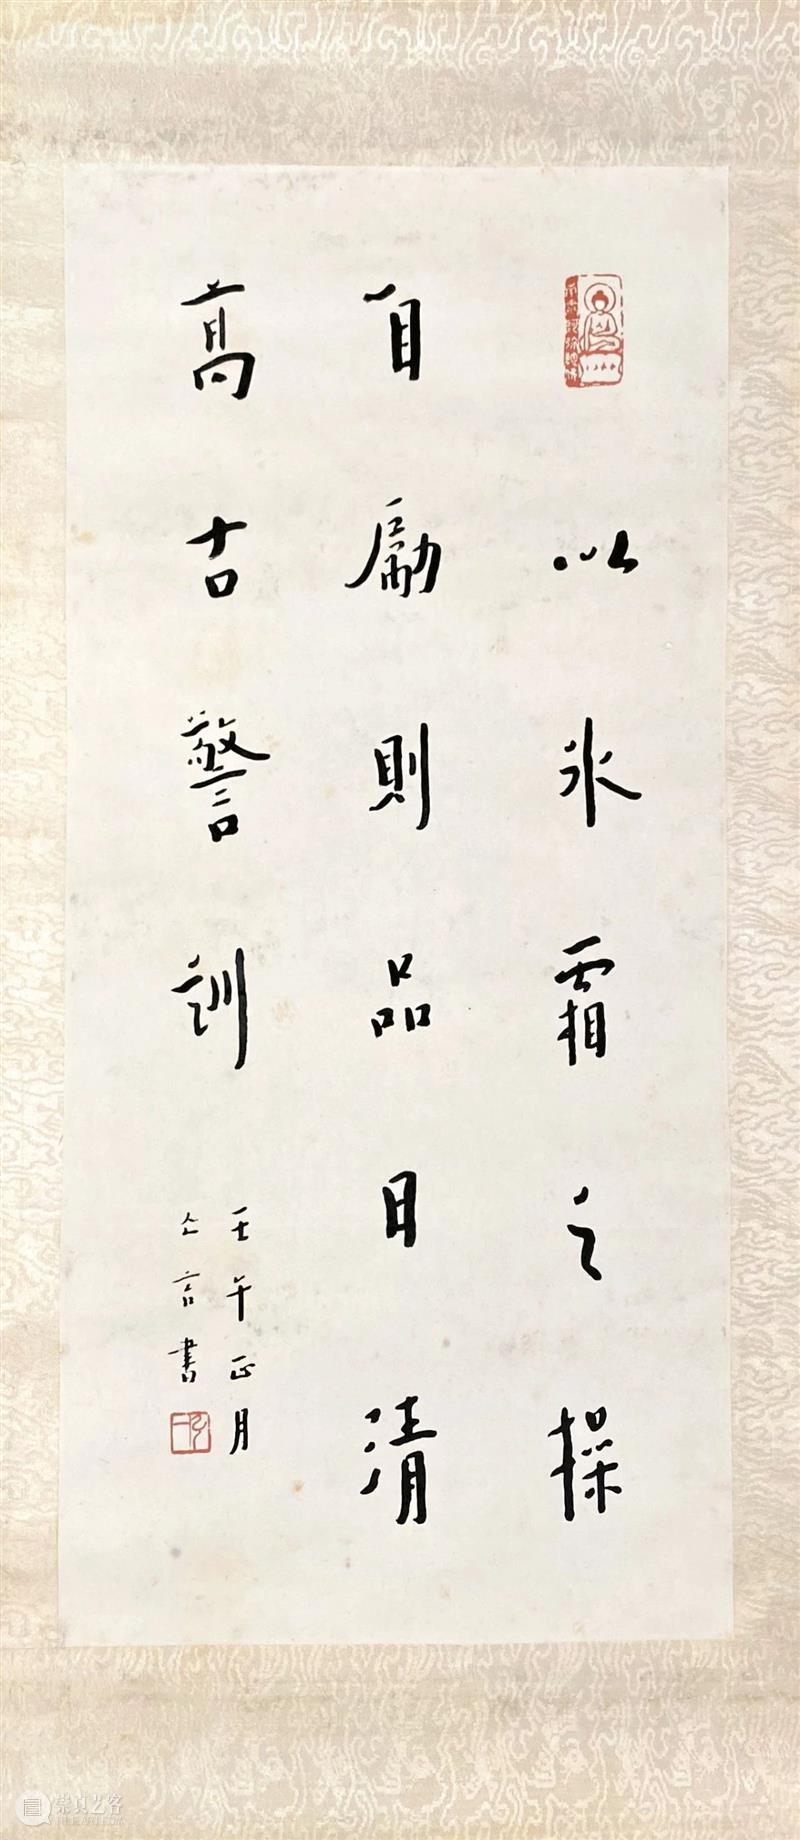 以氷霜之操
自勵則品日清
高古警訓
壬午正月
亡言書
崇真艺客